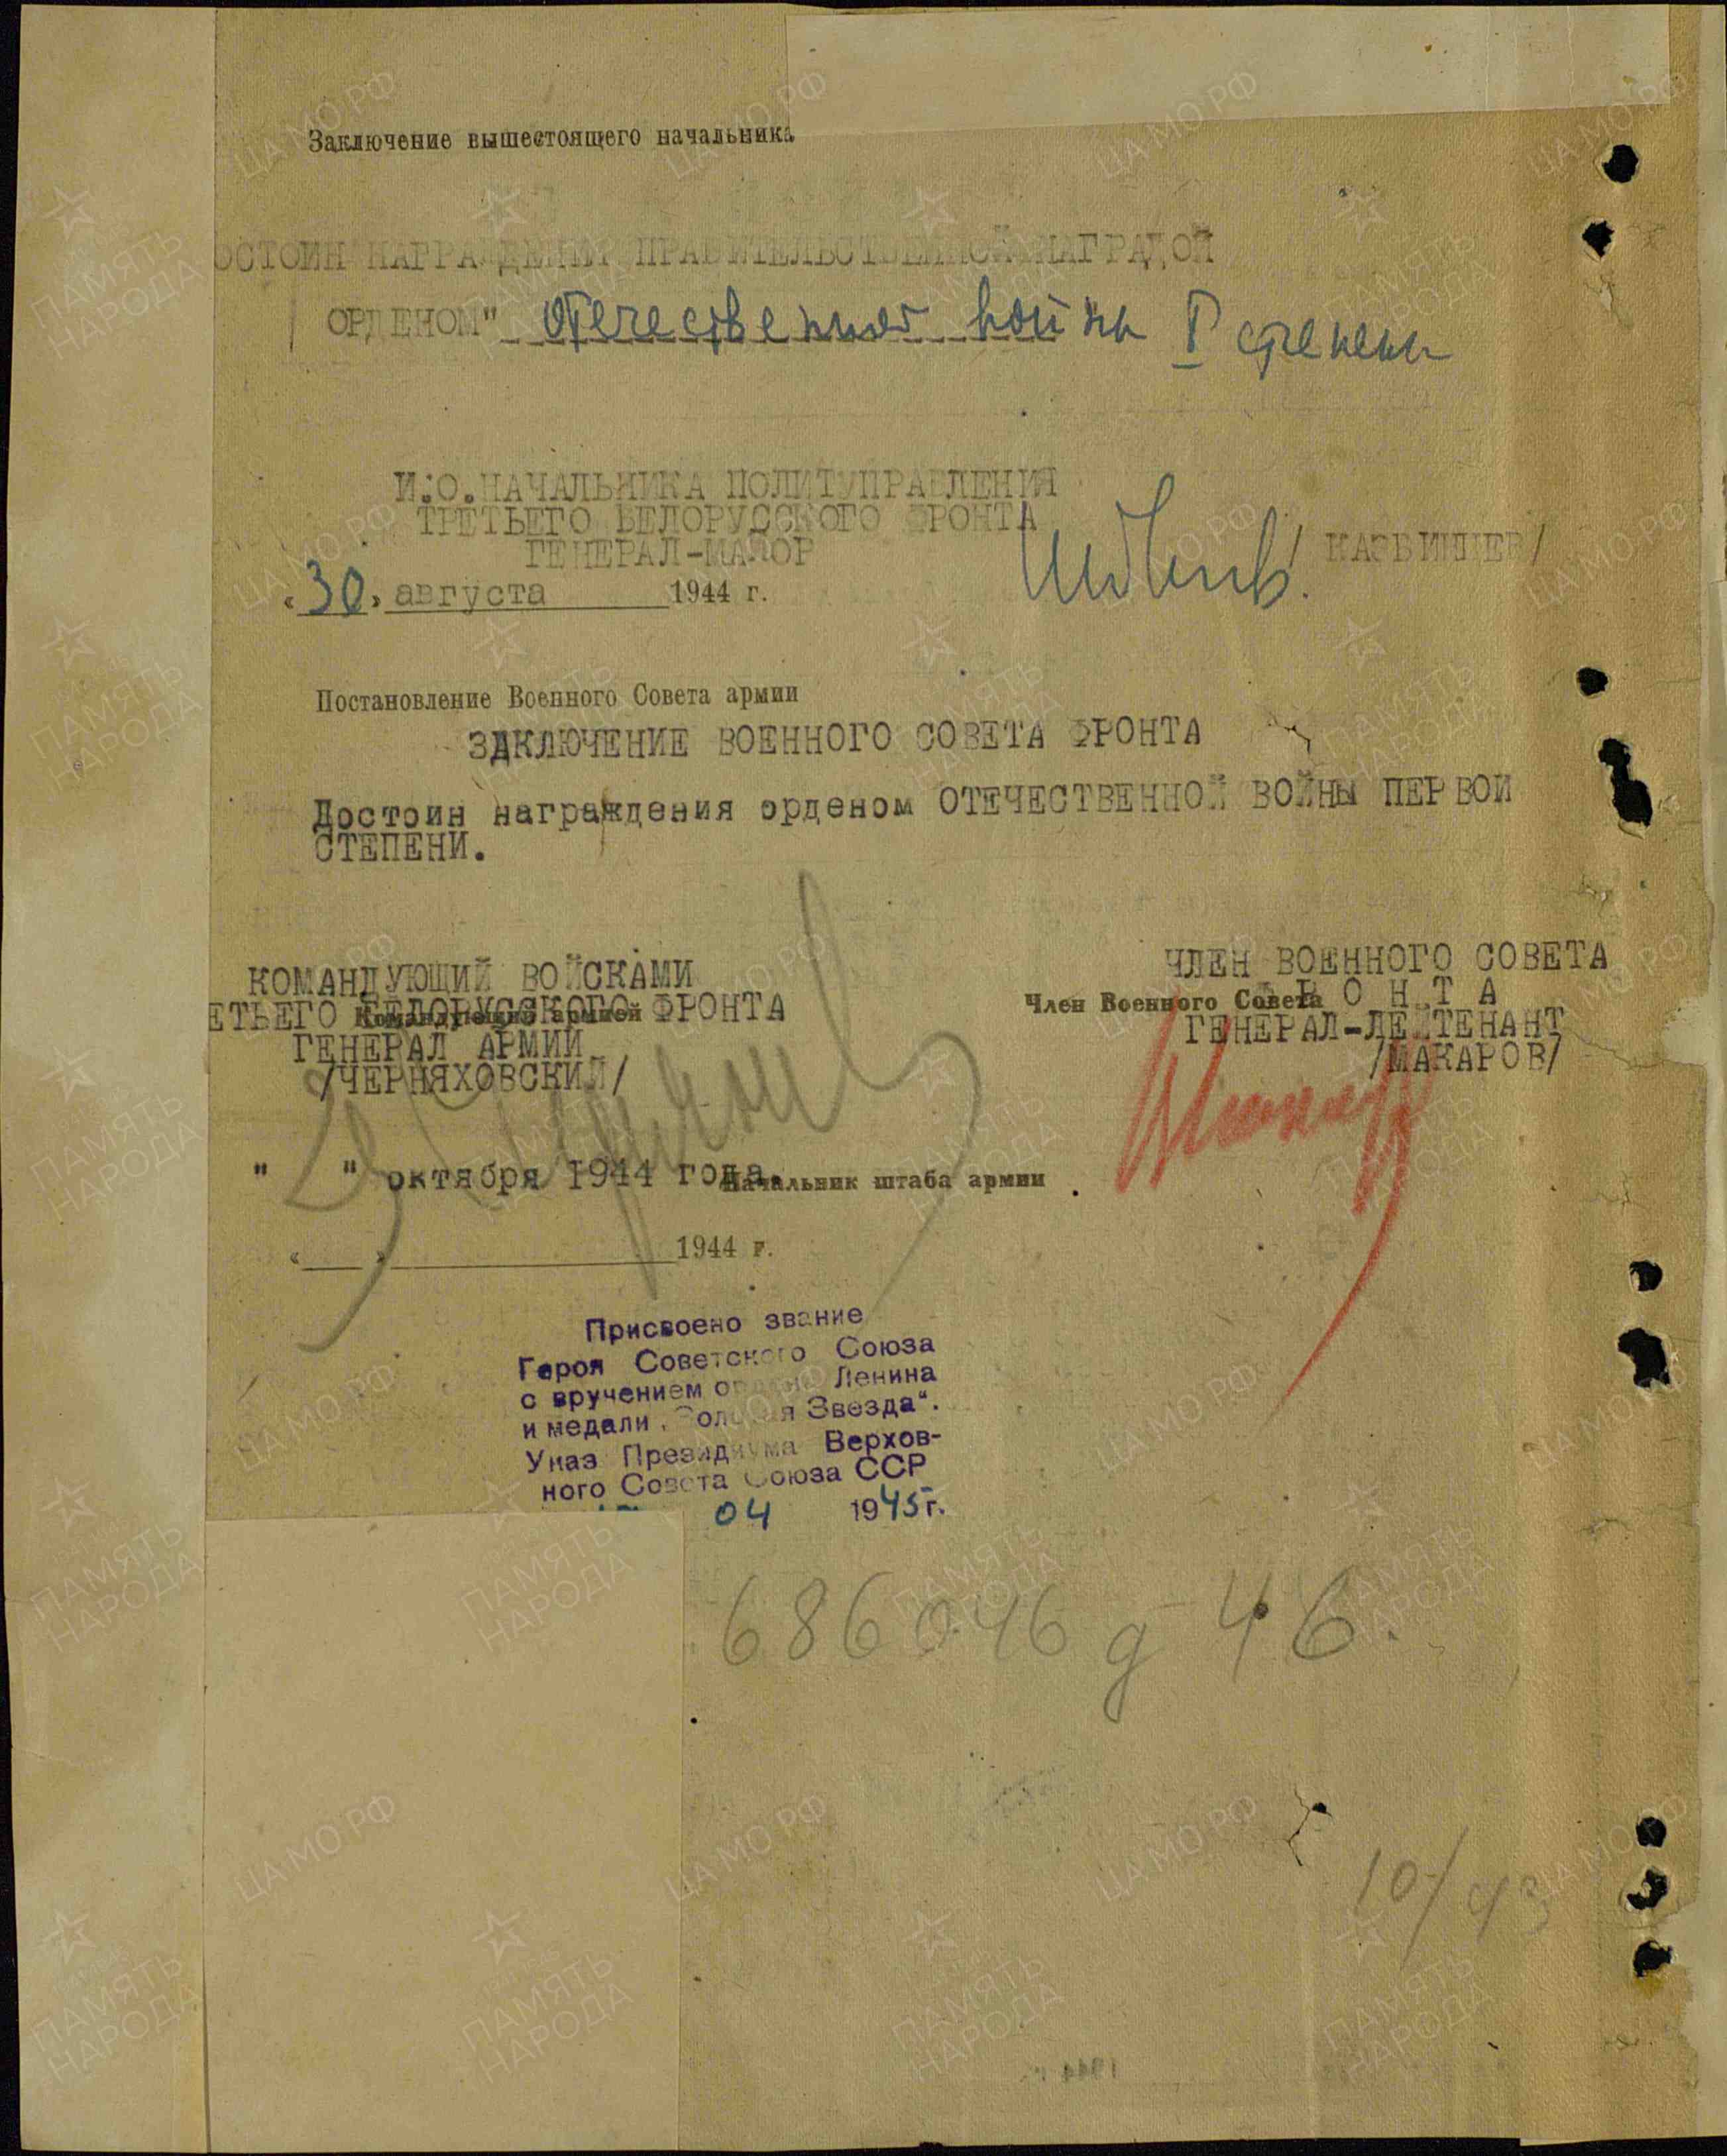 Заключение вышестоящего начальника
ОСТОИН НАГРАЖДЕНИЯ ПРАВИТЕЛЬСТВЕННОЙ НАГРАДОЙ
ОРДЕНОМ" Отечественной войны I степени
И.О.НАЧАЛЬНИКА ПОЛИТУПРАВЛЕНИЯ
ТРЕТЬЕГО БЕЛОРУССКОГО ФРОНТА
ГЕНЕРАЛ-МАЙОР
/КАЗБИНЦЕВ/
«30» августа 1944 г.
Постановление Военного Совета армии
ЗАКЛЮЧЕНИЕ ВОЕННОГО СОВЕТА ФРОНТА
Достоин награждения орденом ОТЕЧЕСТВЕННОЙ ВОЙНЫ ПЕРВОЙ
СТЕПЕНИ.
КОМАНДУЮЩИЙ ВОЙСКАМИ
ЕТЬЕГО БЕЛОРУССКОГО ФРОНТА
Командующий армией
ГЕНЕРАЛ АРМИИ
/ЧЕРНЯХОВСКИЙ/
ЧЛЕН ВОЕННОГО СОВЕТА
Член Военного Совета
Ф Р О Н Т А
ГЕНЕРАЛ-ЛЕЙТЕНАНТ
/МАКАРОВ/
" " октября 1944 года.
Начальник штаба армии
« » 1944 г.
Присвоено звание
Героя Советского Союза
с вручением ордена Ленина
и медали „Золотая Звезда“.
Указ Президиума Верхов-
ного Совета Союза ССР
04 1945 г.
686046 д 46.
10/43
ЦА МО РФ
ПАМЯТЬ
НАРОДА